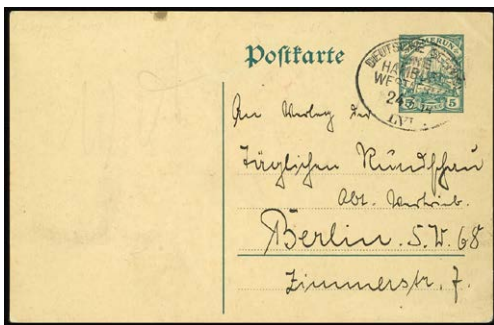 Postkarte
KAMERUN
5
DEUTSCHE
WEST
24
LVI
An Verlag der
Täglichen Rundschau
Abt. Vertrieb.
Berlin. S.W. 68
Zimmerstr. 7.